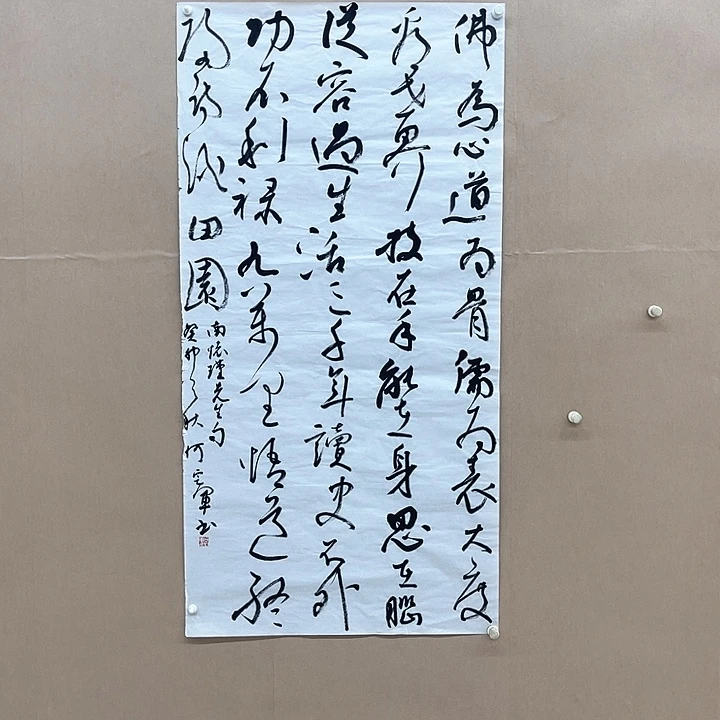 佛為心道為骨儒為表大度
看世界技在手能在身思在腦
從容過生活三千年讀史不外
功名利禄九萬里悟道終
歸詩酒田園
南懷瑾先生句
癸卯之秋 何軍书